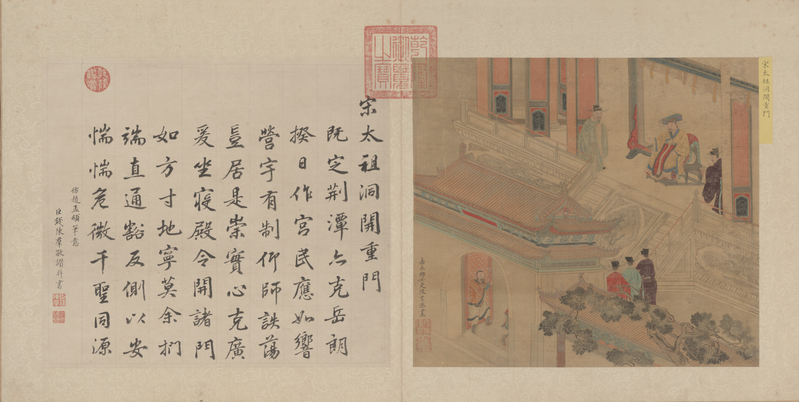 宋太祖洞開重門
乾隆御覽之寶
宋太祖洞開重門
既定荆潭亦克岳朗
揆日作宮民應如響
營宇有制仰師詄蕩
豈居是崇實心克廣
爰坐寢殿令開諸門
如方寸地寧莫余捫
端直通豁反側以安
惴惴危微千聖同源
仿趙孟頫筆意
臣錢陳羣敬譔并書